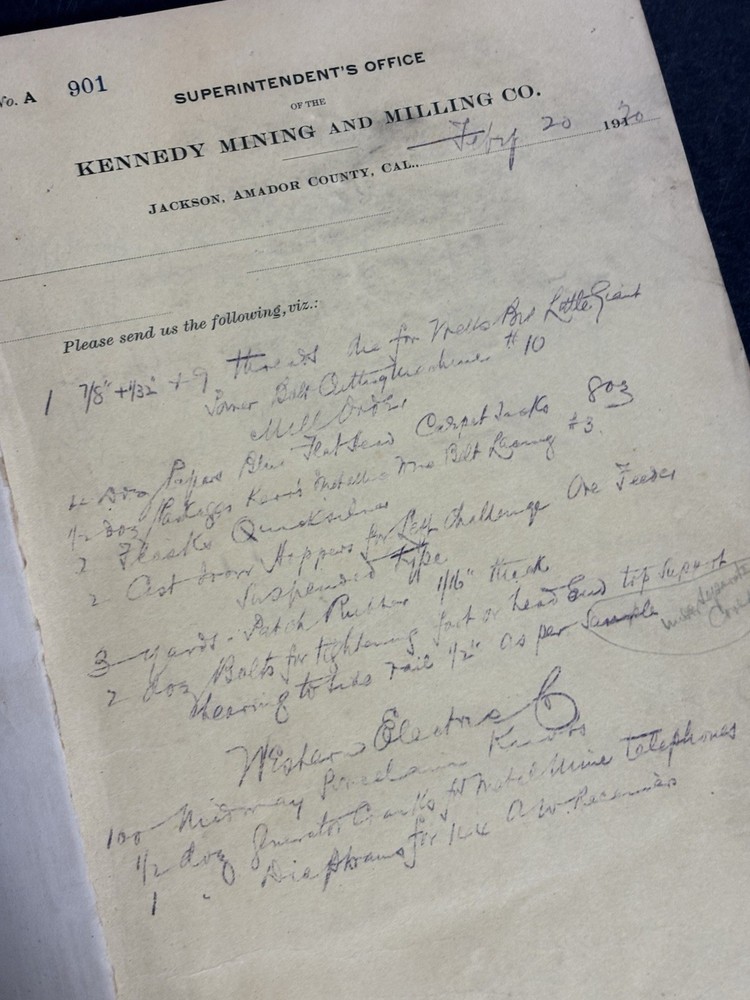 No. A 901
SUPERINTENDENT'S OFFICE
OF THE
KENNEDY MINING AND MILLING CO.
JACKSON, AMADOR COUNTY, CAL., Feby 20 1920
Please send us the following, viz.:
1 7/8" + 1/32" + 9 threads die for Wells Bros Little Giant
Power Bolt Cutting Machine #10
Mill Order
doz Papers Blue Flat head Carpet Tacks 8oz
1/2 doz Packages Kerr's Metallic Belt Lacing #3.
2 Flasks Quicksilver
2 Cast Iron Hoppers for Challenge Ore Feeder
Suspended Type
3 yards Patch Rubber 1/16" thick
2 doz Bolts for tightening foot or head end top support
bearing to side rail 1/2" as per Sample
Western Electric Co
100 Midway Porcelain Knobs
1/2 doz Generator Cranks for Mine Telephones
1 " Diaphrams for Receivers